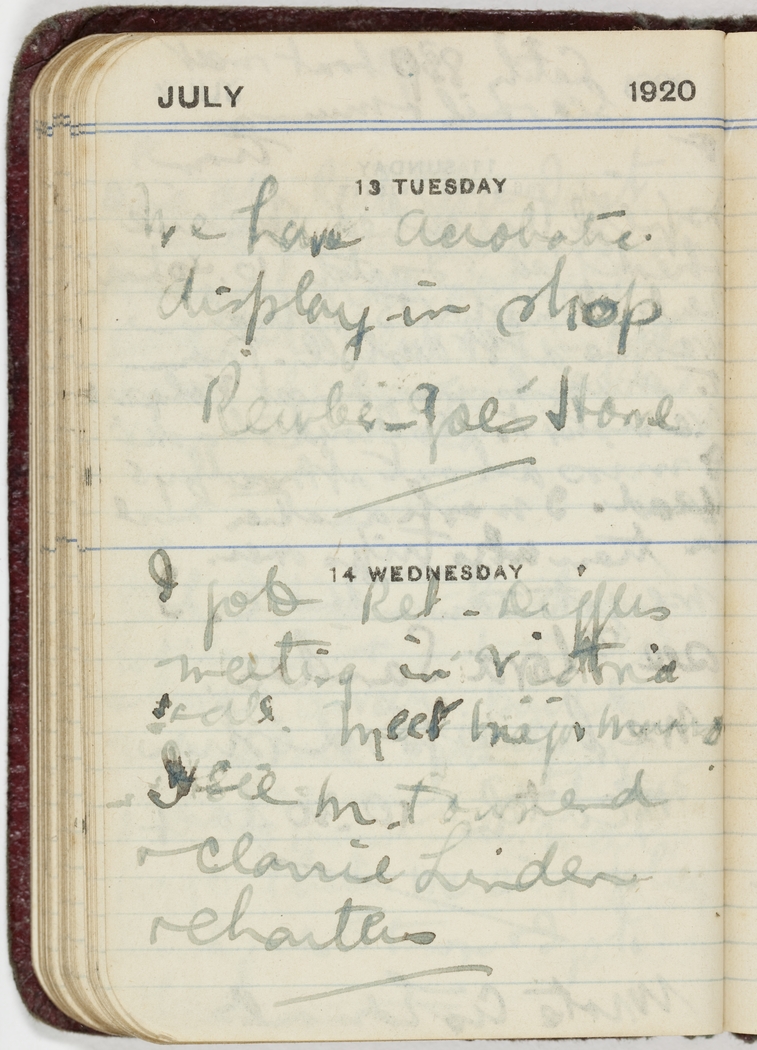 JULY 1920
13 TUESDAY
We have acrobatic
display in shop
Goes Home
14 WEDNESDAY
I
job Ret - Diggers
meeting in Victoria
meet major
See M. Townend
Clarrie Linden
Charters